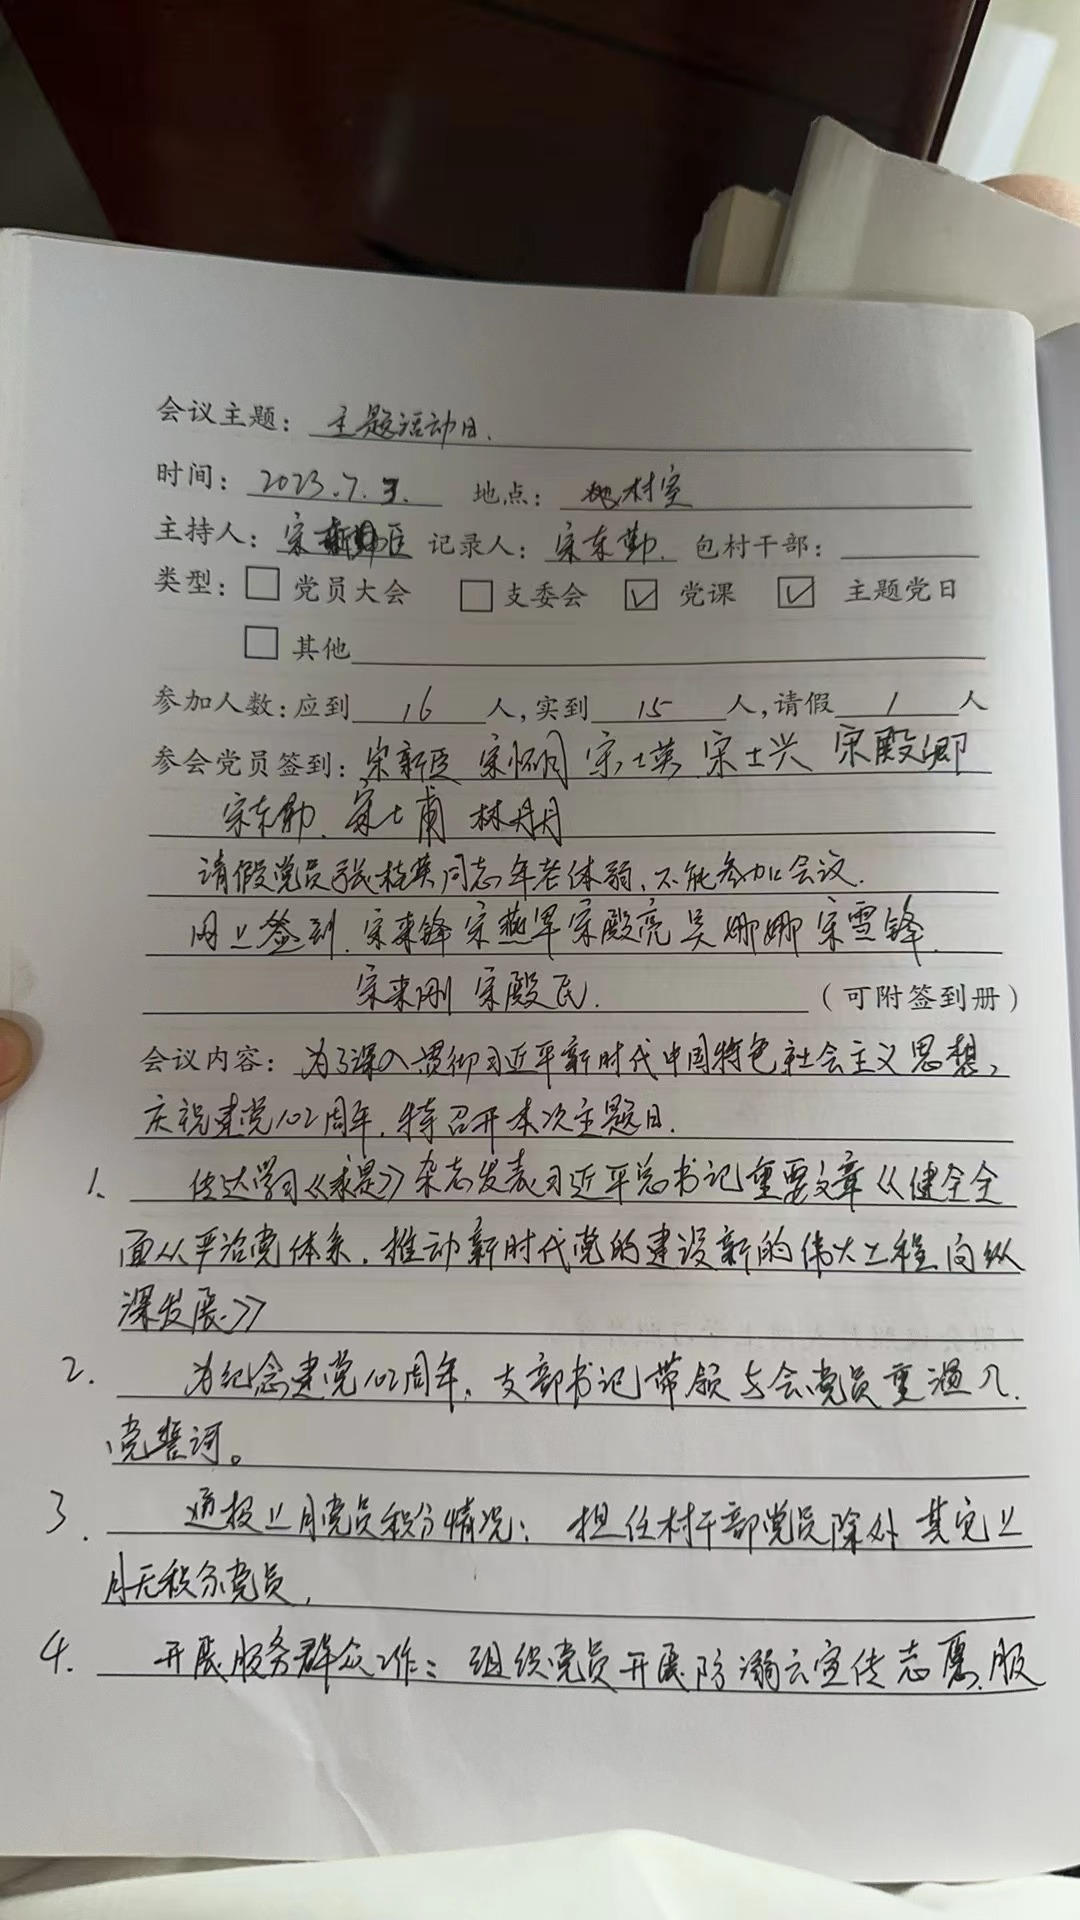 会议主题：主题活动日.
时间：2023.7.3. 地点：村室
主持人：宋新臣 记录人：宋东勤. 包村干部：
类型：□党员大会 □支委会 ☑党课 ☑主题党日
□其他
参加人数：应到16人，实到15人，请假1人
参会党员签到：宋新臣 宋怀同 宋士英 宋士兴 宋殿卿
宋东勤. 宋士甫 林丹丹
请假党员张桂英同志年老体弱、不能参加会议.
网上签到. 宋来锋 宋燕军 宋殿亮 吴娜娜 宋雪锋
宋来刚 宋殿民. （可附签到册）
会议内容：为了深入贯彻习近平新时代中国特色社会主义思想，
庆祝建党102周年，特召开本次主题日.
1、传达学习《求是》杂志发表习近平总书记重要文章《健全全
面从严治党体系，推动新时代党的建设新的伟大工程向纵
深发展》
2. 为纪念建党102周年，支部书记带领与会党员重温入
党誓词。
3. 通报上月党员积分情况：担任村干部党员除外 其它上
月无积分党员，
4. 开展服务群众工作：组织党员开展防溺水宣传志愿服